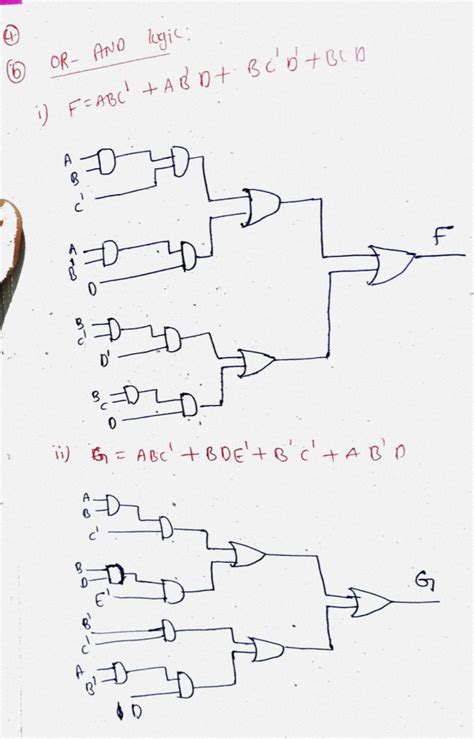 4
b OR-AND logic:
i) F=ABC' + AB'D + BC'D' + BCD
A
B
C'
A
B
D
F
B
C'
D'
B
C
D
ii) G = ABC' + BDE' + B'C' + AB'D
A
B
C'
B
D
E'
G
B'
C'
A
B'
D